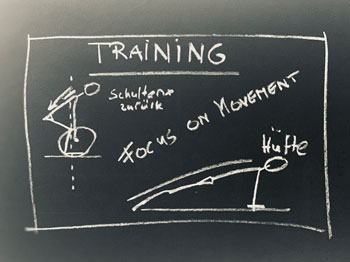 TRAINING
Schultern
zurück
FOCUS ON MOVEMENT
Hüfte